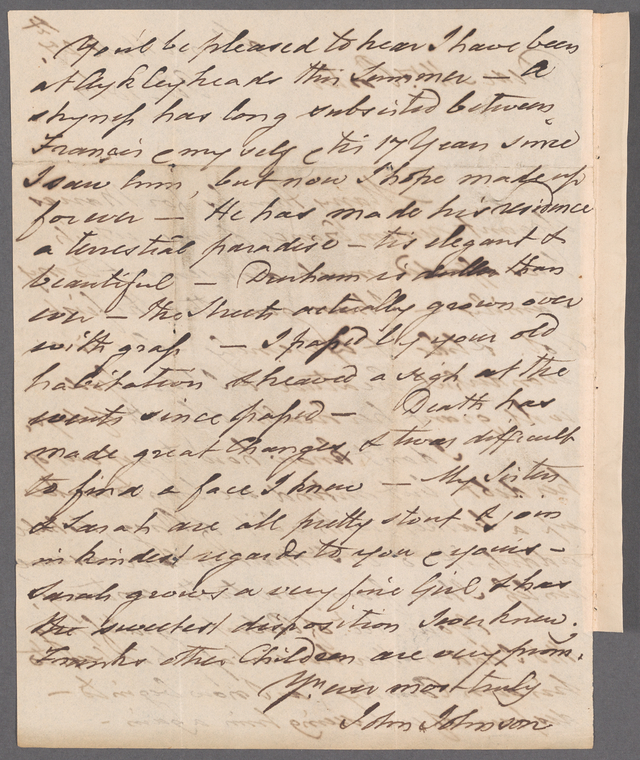 You'l be pleased to hear I have been
at Aykleyheads this Summer — A
shyness has long subsisted between
Francis & my self & tis 17 Years since
I saw him, but now I hope made up
for ever — He has made his residence
a terrestial paradise — tis elegant &
beautiful — Durham is duller than
ever — the Streets actually grown over
with grass — I passed by your old
habitation & heaved a sigh at the
events since passed — Death has
made great Changes, & twas difficult
to find a face I knew — My Sister
& Sarah are all pretty stout & join
in kindest regards to you & yours —
Sarah grows a very fine Girl & has
the sweetest disposition I ever knew.
Franks other Children are very prom:
Yrs ever most truly
John Johnson